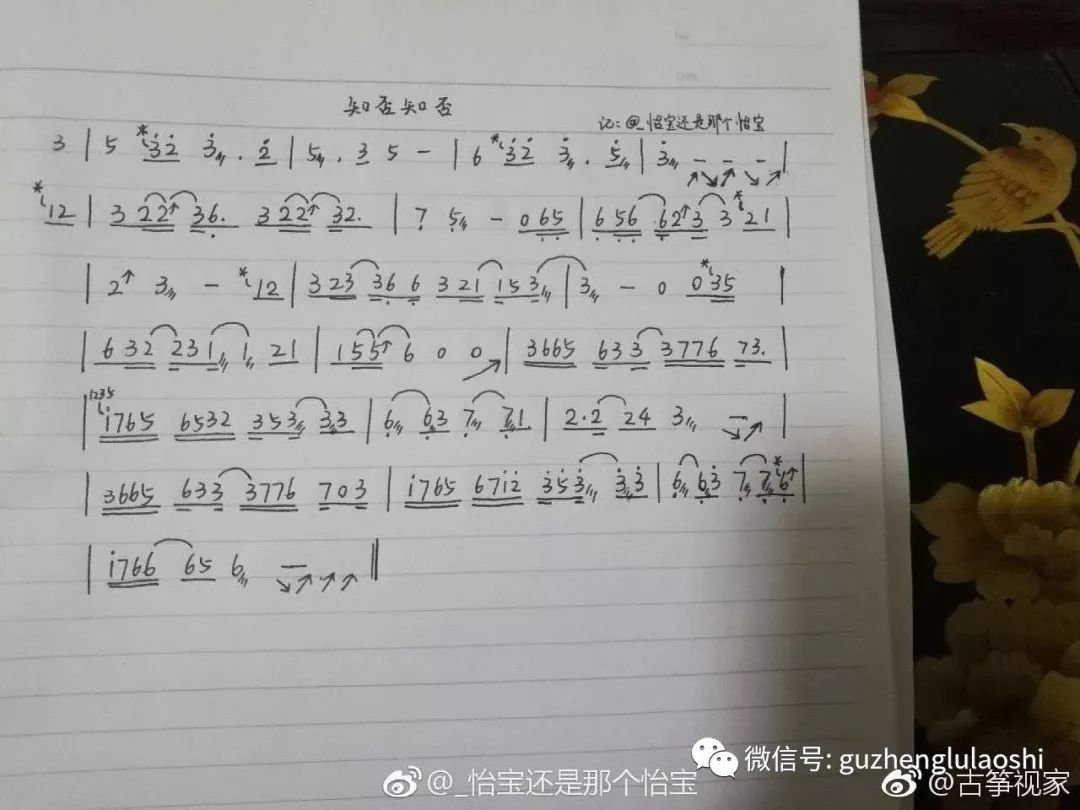 No
Date
知否知否
记:@_怡宝还是那个怡宝
3 | 5 *32 3 . 2 | 5 . 3 5 — | 6 *32 3 . 5 | 3 — — — |
*12 | 3 22↑ 36. 3 22↑ 32. | 7 5 — 0 65 | 6 56 62↑3 3 *21 |
| 2↑ 3 — *12 | 3 23 36 6 3 21 1 53 | 3 — 0 0 35 |
| 6 32 231 1 21 | 155↑ 6 0 0 ↗ | 3665 633 3776 73. |
1235
| i765 6532 353 33 | 6 63 7 71 | 2·2 24 3 — ↘↗ |
| 3665 633 3776 703 | i765 67i2 353 33 | 6 63 7 7*6↑ |
| i766 65 6 — ↘↗↗↗ ‖
微信号: guzhenglulaoshi
@_怡宝还是那个怡宝
@古筝视家